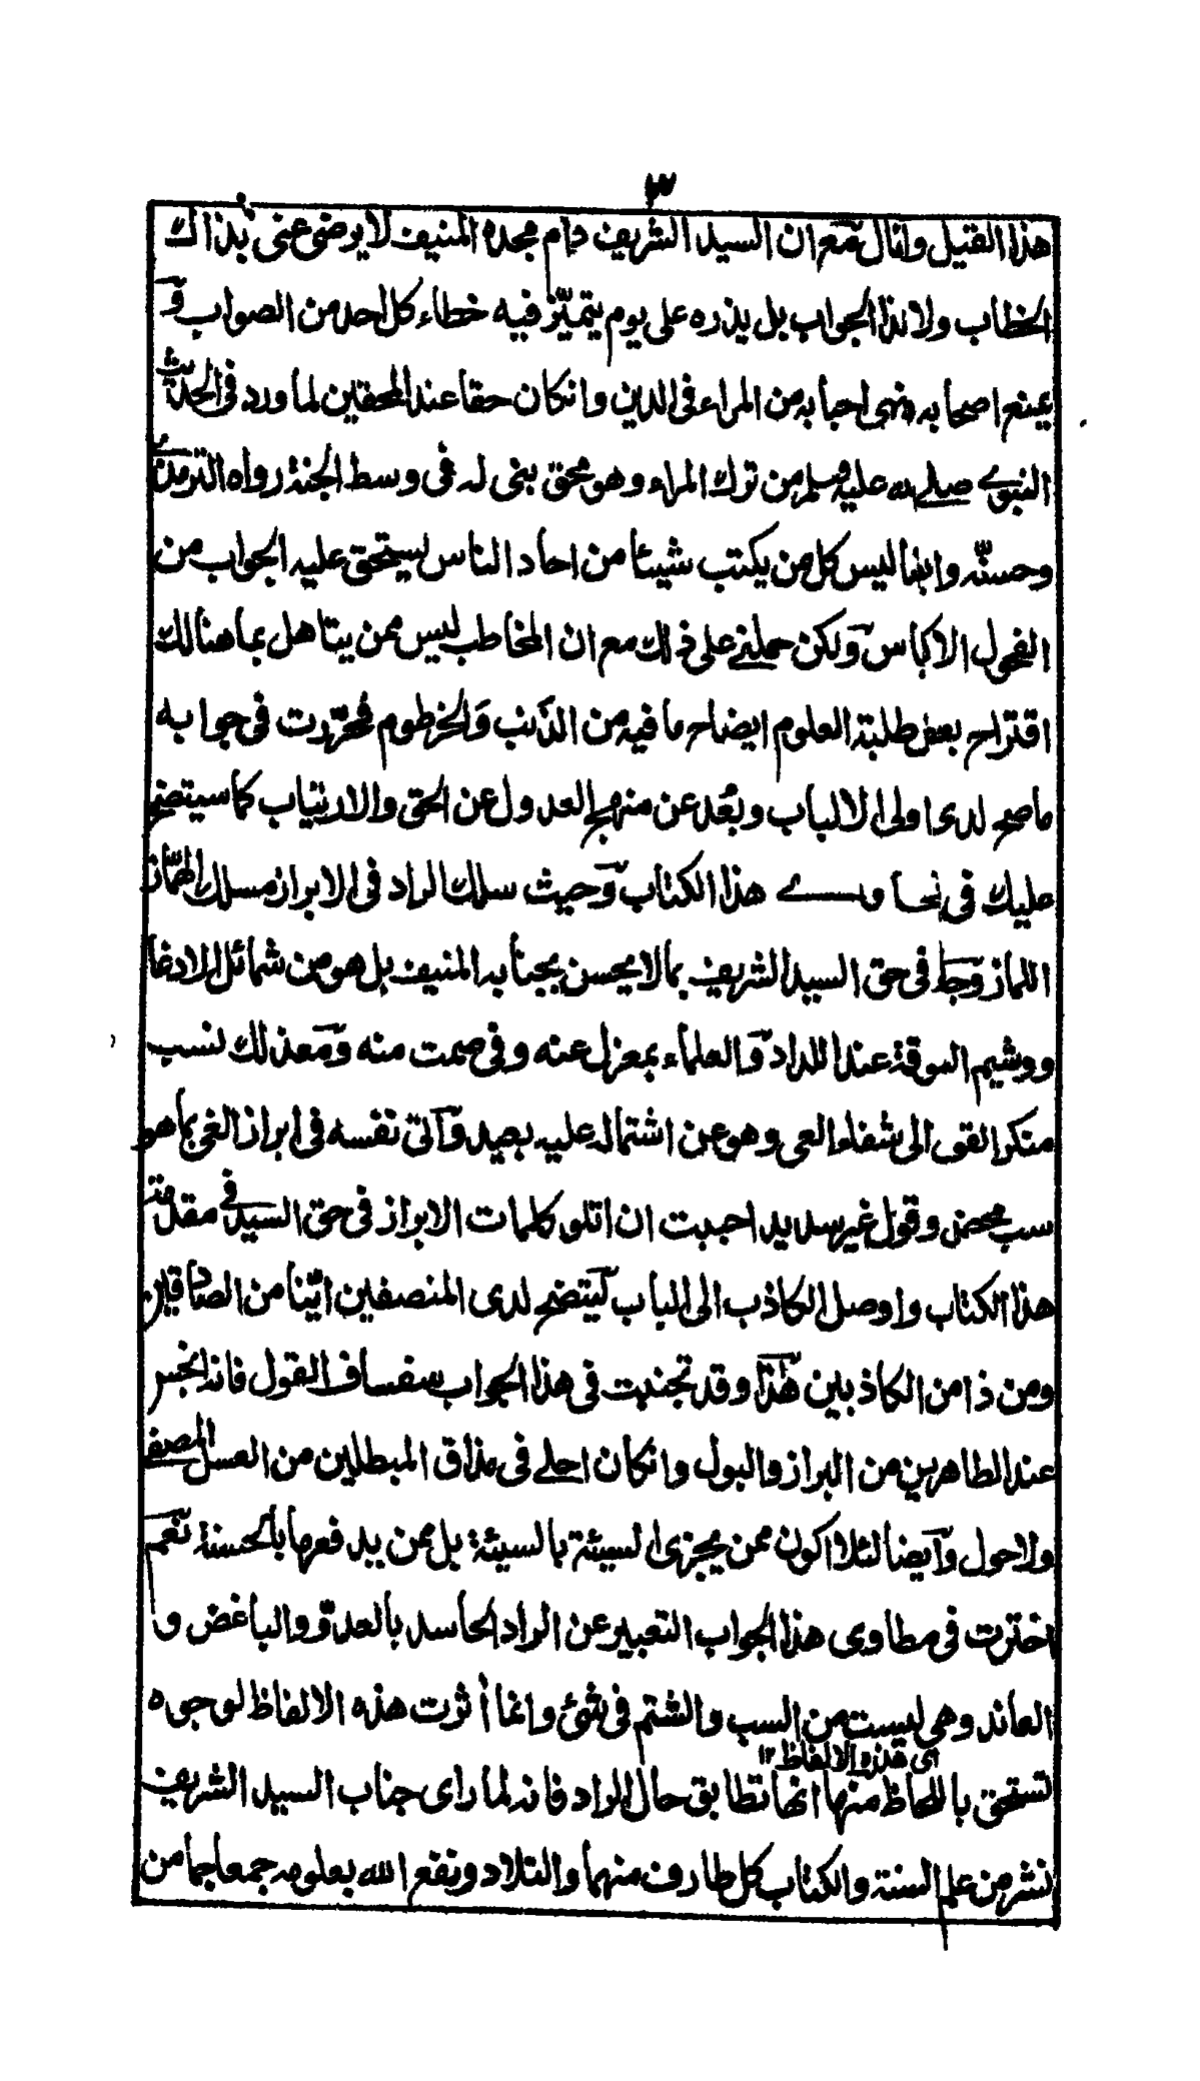 ٣
هذا القتيل وانال مع ان السيد الشريف دام مجده المنيف لا يرضى عنى بذاك
الخطاب ولا بذا الجواب بل يذره على يوم يتميّز فيه خطاء كل احد من الصواب و
يمنع اصحابه وينهى احبابه من المراء فى الدين وانكان حقا عند المحقين لما ورد فى الحديث
النبوى صلى الله عليه وسلم من ترك المراء وهو محق بنى له فى وسط الجنة رواه الترمذى
وحسنه وايضا ليس كل من يكتب شيئا من احاد الناس ليستحق عليه الجواب من
الفحول الاكياس ولكن حملنى على ذلك مع ان المخاطب ليس ممن يتاهل بما هنالك
اقتراح بعض طلبة العلوم ايضاح ما فيه من الذنب والخرطوم فحرّرت فى جوابه
ما صح لدى اولى الالباب وبعُد عن منهج العدول عن الحق والارتياب كما سيتضح
عليك فى نحاوى هذا الكتاب وحيث سلك الراد فى الابراز مسلك الهمّاز
اللماز وجاء فى حق السيد الشريف بما لا يحسن بجنابه المنيف بل هو من شمائل الاوغاد
ووشيم السوقة عند اللداد والعلماء بمعزل عنه وفى صمت منه ومع ذلك نسب
منكر القول الى شفاء العى وهو عن اشتماله عليه بعيد وآتى نفسه فى ابراز الغى بما هو
سب محض وقول غير سديد احببت ان اتلو كلمات الابراز فى حق السيد فى مقدمة
هذا الكتاب واوصل الكاذب الى الباب ليتضح لدى المنصفين ايّنا من الصادقين
ومن ذا من الكاذبين هذا وقد تجنبت فى هذا الجواب سفساف القول فانه انجس
عند الطاهرين من البراز والبول وانكان احلى فى مذاق المبطلين من العسل المصفى
والاحول وايضا لئلا اكون ممن يجزى السيئة بالسيئة بل ممن يدفعها بالحسنة نعم
اخترت فى مطاوى هذا الجواب التعبير عن الراد الحاسد بالعدوّ والباغض و
العاند وهى ليست من السب والشتم فى شئ وانما أثرت هذه الالفاظ لوجوه
اى هذه الالفاظ ١٢
تستحق باللحاظ منها انها تطابق حال الراد فانه لما راى جناب السيد الشريف
نشر من علم السنة والكتاب كل طارف منهما والتلاد ونفع الله بعلومه جمعا جما من